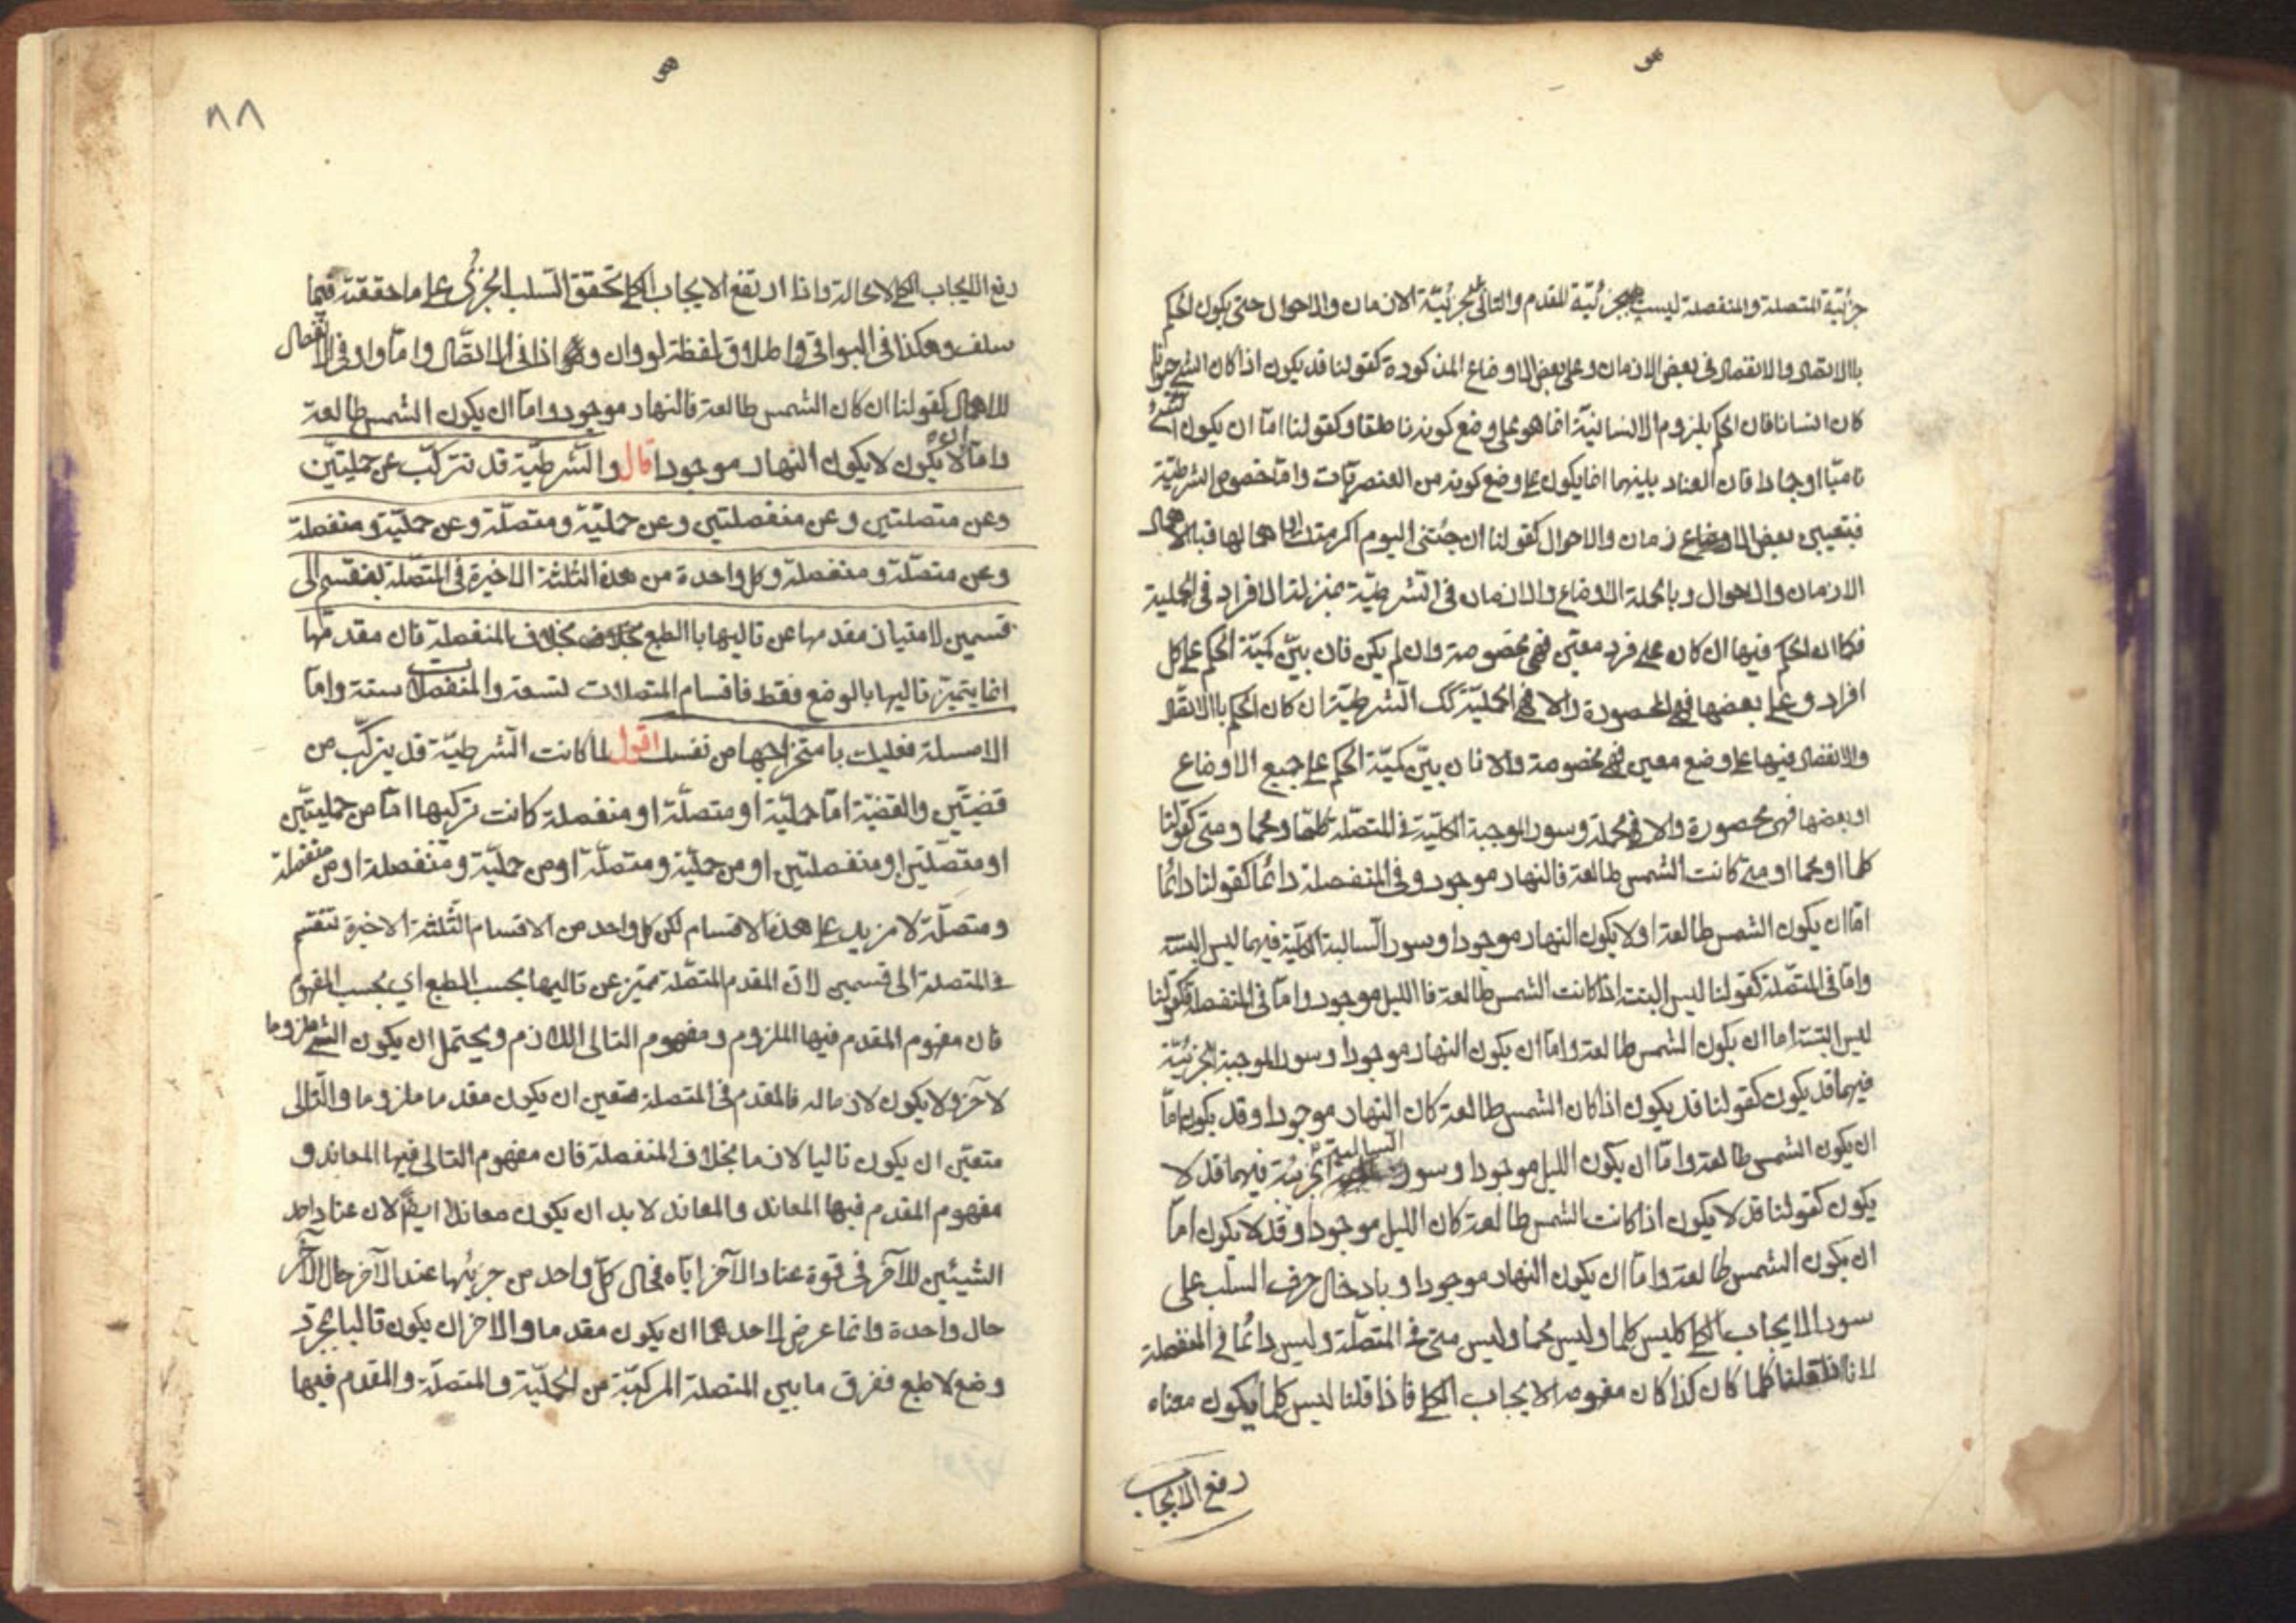 جزئيّة المتصلة والمنفصلة ليست بجزئيّة المقدم والتالى بل بجزئيّة الازمان والاحوال حتى يكون الحكم
بالاتصال والانفصال فى بعض الازمان وعلى بعض الاوضاع المذكورة كقولنا قد يكون اذا كان الشئ حيوانا
كان انسانا فان الحكم بلزوم الانسانيّة انما هو على وضع كونه ناطقا وكقولنا امّا ان يكون الشئ
ناميا او جمادا فان العناد بينهما انما يكون على وضع كونه من العنصريّات وامّا خصوص الشرطيّة
فبتعيين بعض الازمان والاحوال كقولنا ان جئتنى اليوم اكرمتك واما اهمالها فباهمال
الازمان والاحوال وبالجملة الاوضاع والازمان فى الشّرطيّة بمنزلة الافراد فى الحملية
فكما ان الحكم فيها ان كان على فرد معيّن فهى مخصوصة وان لم يكن فان بيّن كميّة الحكم على كل
افراد وعلى بعضها فهى المحصورة والا فهى الحمليّة كك الشرطيّة ان كان الحكم بالاتصال
والانفصال فيها على وضع معين فهى مخصوصة والا فان بيّن كميّة الحكم على جميع الاوضاع
او بعضها فهى محصورة والا فمهملة وسور الموجبة الكليّة فى المتصلة كلّما ومهما ومتى كقولنا
كلما او مهما او متى كانت الشمس طالعة فالنهار موجود وفى المنفصلة دائمًا كقولنا دائمًا
امّا ان يكون الشمس طالعة او لا يكون النهار موجودا وسور السّالبة الكليّة فيهما ليس البتة
وامّا فى المتصّلة كقولنا ليس البتة اذا كانت الشمس طالعة فا الليل موجود وامّا فى المنفصلة فكقولنا
ليس البتة اما ان يكون الشمس طالعة وامّا ان يكون النهار موجودا وسور الموجبة الجزئيّة
فيهما قد يكون كقولنا قد يكون اذا كان الشمس طالعة كان النهار موجودا وقد يكون امّا
ان يكون الشمس طالعة وامّا ان يكون الليل موجودا وسور السالبة الجزئية فيهما قد لا
يكون كقولنا قد لا يكون اذا كانت الشمس طالعة كان الليل موجودا وقد لا يكون امّا
ان يكون الشمس طالعة وامّا ان يكون النهار موجودا وبادخال حرف السّلب على
سور الايجاب الكلى كليس كلما وليس مهما وليس متى فى المتصلّة وليس دائمًا فى المنفصلة
لانا اذا قلنا كلما كان كذا كان مفهومه الايجاب الكلى فاذا قلنا ليس كلما يكون معناه
رفع الايجاب
٨٨
رفع الايجاب الكلى لا محالة واذا ارتفع الايجاب الكلى تحقق السّلب الجزئى على ما حققته فيما
سلف وهكذا فى البواقى واطلاق لفظة لو وان واذا فى الاتصّال وامّا واو فى الانفصال
للاهمال كقولنا ان كان الشمس طالعة فالنهار موجود وامّا ان يكون الشمس طالعة
وامّا ان لا يكون النهار موجودا قال والشّرطيّة قد تتركّب عن حمليّتين
وعن متصلتين وعن منفصلتين وعن حمليّة ومتصلّة وعن حمليّة ومنفصلة
وعن متصلّة ومنفصلة وكل واحدة من هذه الثلثة الاخيرة فى المتصّلة ينقسم الى
قسمين لامتياز مقدمها عن تاليها با الطبع بخلاف المنفصلة فان مقدمّها
انما يتميّز تاليها بالوضع فقط فاقسام المتصلات تسعة والمنفصلات ستة وامّا
الامسلة فعليك باستخراجها من نفسك اقول لما كانت الشّرطيّة قد يتركّب من
قضيّتين والقضيّة امّا حمليّة او متصلّة او منفصلة كانت تركيبها امّا من حمليتيّن
او متصّلتين او منفصلتين او من حمليّة ومتصلّة او من حمليّة ومنفصلة او من منفصلة
ومتصلّة لا مزيد على هذه الاقسام لكن كل واحد من الاقسام الثّلثة الاخيرة تنقسم
فى المتصلة الى قسمين لانّ المقدم المتصّلة متميّز عن تاليها بحسب الطبع اى بحسب المفهوم
فان مفهوم المقدم فيها الملزوم ومفهوم التالى اللازم ويحتمل ان يكون الشئ ملزوما
لآخر ولا يكون لازما له فالمقدم فى المتصلة متعين ان يكون مقدما ملزوما والتّالى
متعيّن ان يكون تاليا لازما بخلاف المنفصلة فان مفهوم التالى فيها المعاند و
مفهوم المقدم فيها المعاند والمعاند لا بد ان يكون معاندا ايضًا لان عناد احد
الشيئين للآخر فى قوة عناد الآخر ايّاه فحال كلّ واحد من جزئيها عند الآخر حال الآخر
حال واحدة وانما عرض لاحدهما ان يكون مقدما والاخر ان يكون تاليا بمجرّد
وضع لا طبع ففرق ما بين المتصلة المركبّة من الحمليّة والمتصلّة والمقدم فيها